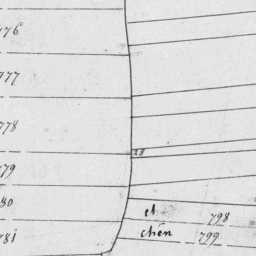 776
777
778
779
780
781
el 798
chén 799